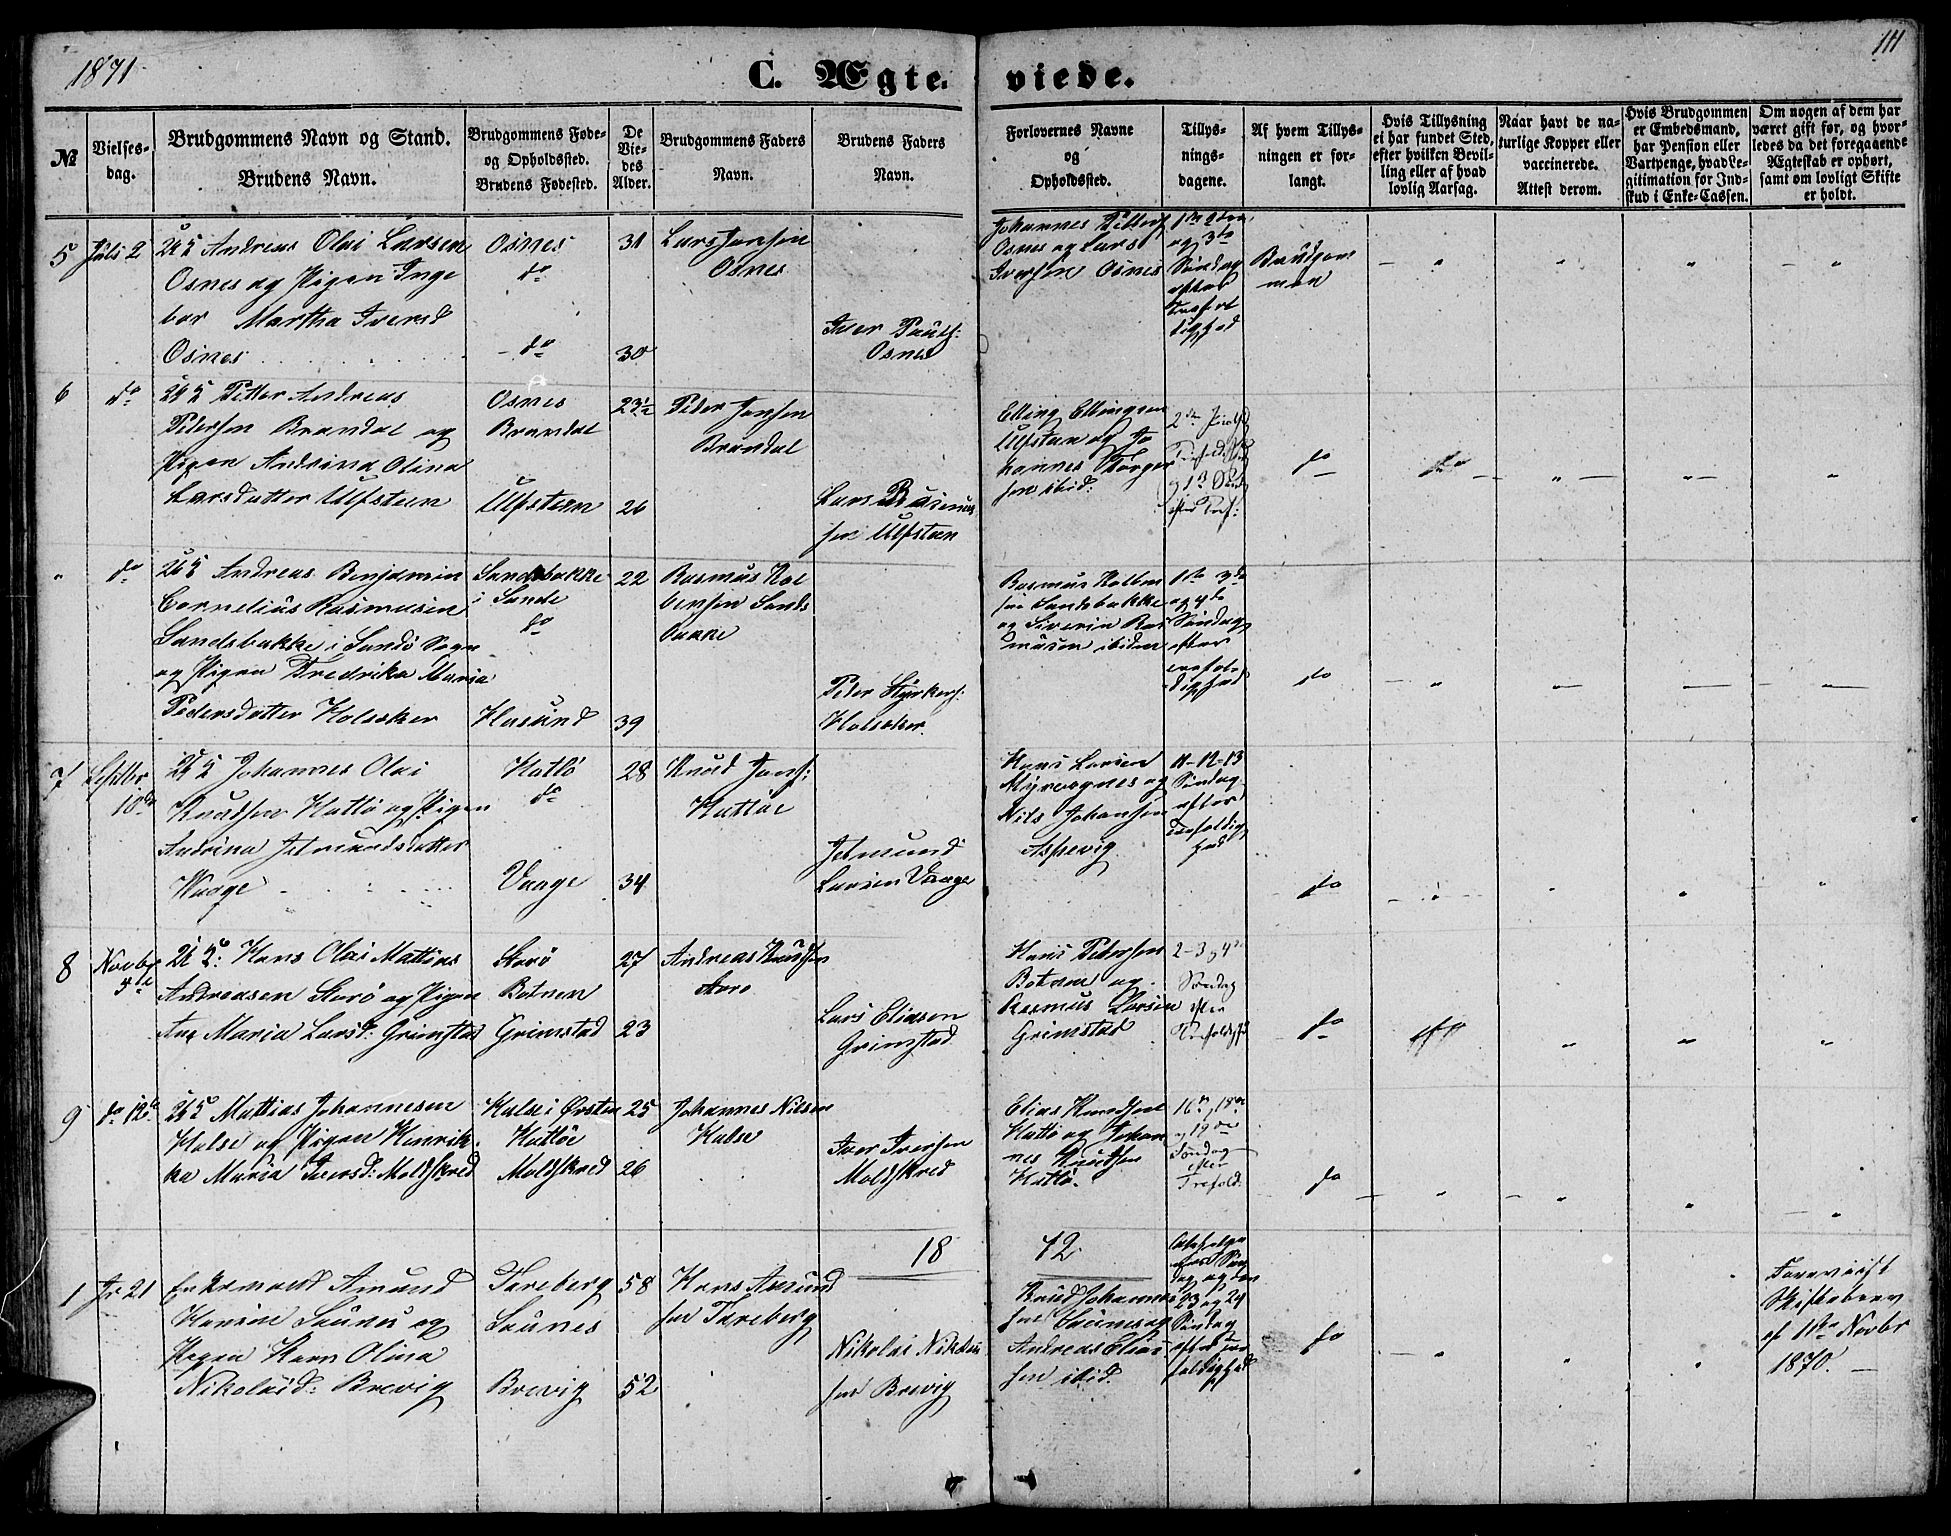 1871
111
C. Ægte. viede.
№
Vielses-
dag.
Brudgommens Navn og Stand.
Brudens Navn.
Brudgommens Føde-
og Opholdssted.
Brudens Fødested.
De
Vie-
des
Alder.
Brudgommens Faders
Navn.
Brudens Faders
Navn.
Forlovernes Navne
og
Opholdssted.
Tillys-
nings-
dagene.
Af hvem Tillys-
ningen er for-
langt.
Hvis Tillysning
ei har fundet Sted,
efter hvilken Bevil-
ling eller af hvad
lovlig Aarsag.
Naar havt de na-
turlige Kopper eller
vaccinerede.
Attest derom.
Hvis Brudgommen
er Embedsmand,
har Pension eller
Vartpenge, hvad Le-
gitimation for Ind-
skud i Enke-Cassen.
Om nogen af dem har
været gift før, og hvor-
ledes da det foregaaende
Ægteskab er ophørt,
samt om lovligt Skifte
er holdt.
5 Juli 2
Andreas Olai Larsen
Osnes og Pigen Inge
bor Martha Iversd
Osnes
Osnes
do
do
31
30
Lars Jensen
Osnes
Iver Pauls:
Osnes
Johannes Petters
Osnes og Lars
Iversen Osnes
og 3de
Søndag
efter
Trefol
dighed
Brudgom
men
6 do
Petter Andreas
Pedersen Brandal og
Pigen Andrina Olina
Larsdatter Ulfsteen
Osnes
Brandal
Ulfsteen
23½
26
Peder Jensen
Brandal
Lars Rasmus
sen Ulfsten
Elling Ellingsen
Ulfsten og Jo
hannes
sen ibid:
do
" do
Andreas Benjamin
Cornelius Rasmusen
Sandsbakke i Sande Sogn
og Pigen Fredrika Maria
Pedersdatter Holsæker
Sandsbakke
i Sande
do
Hasund
22
39
Rasmus Kol
bensen Sands
bakke
Peder Styrkers:
Holsæker
Rasmus Kolben
sen Sandsbakke
og Siverin Ras
musen ibidem
1ste 3de
og 4de
Søndag
efter
Trefol
dighed
do
7 Septbr
10de
Johannes Olai
Knudsen Hatlø og Pigen
Andrina Jetmundsdatter
Waage
Hatlø
do
Vaage
28
34
Knud Jans:
Hatløe
Jetmund
Larsen Vaage
Hans Larsen
Myrvognes og
Nils Johansen
Aspevig
11-12-13
Søndag
efter
Trefoldig
hed
do
8 Novbr
Hans Olai Mattias
Andreasen Storø og Pigen
Ane Maria Larsd: Grimstad
Storø
Botnen
Grimstad
27
23
Andreas Knudsen
Lars Eliasen
Grimstad
Hans Petersen
Botnen og
Rasmus Larsen
Grimstad
2-3 4
Søndag
efter
Trefoldighed
do
9 do 12te
Mattias Johannesen
Halse og Pigen Henrik-
ka Maria Iversd: Moldskred
Halse i Ørsten
Hatløe
Moldskred
25
26
Johannes Nilsen
Halse
Iver Iversen
Moldskred
Elias Knudsen
Hatlø og Johan
nes Knudsen
Hatlø.
Søndag
efter
Trefold:
do
18
12
1 Jr 21
Enkemand Amund
Hansen Saunes og
Pigen Karn Olina
Nikolaid: Brevig
Tareberg
Saunes
Brevig
58
52
Hans Amund
sen Tareberg
Nikolai Nikolai
sen Brevig
Knud Johannes
sen Saunes og
Andreas Elias
sen ibid.
23 og 24
Søndag
efter Tre
foldighed
do
Forevist
Skiftebrev
af 11te Novbr
1870.